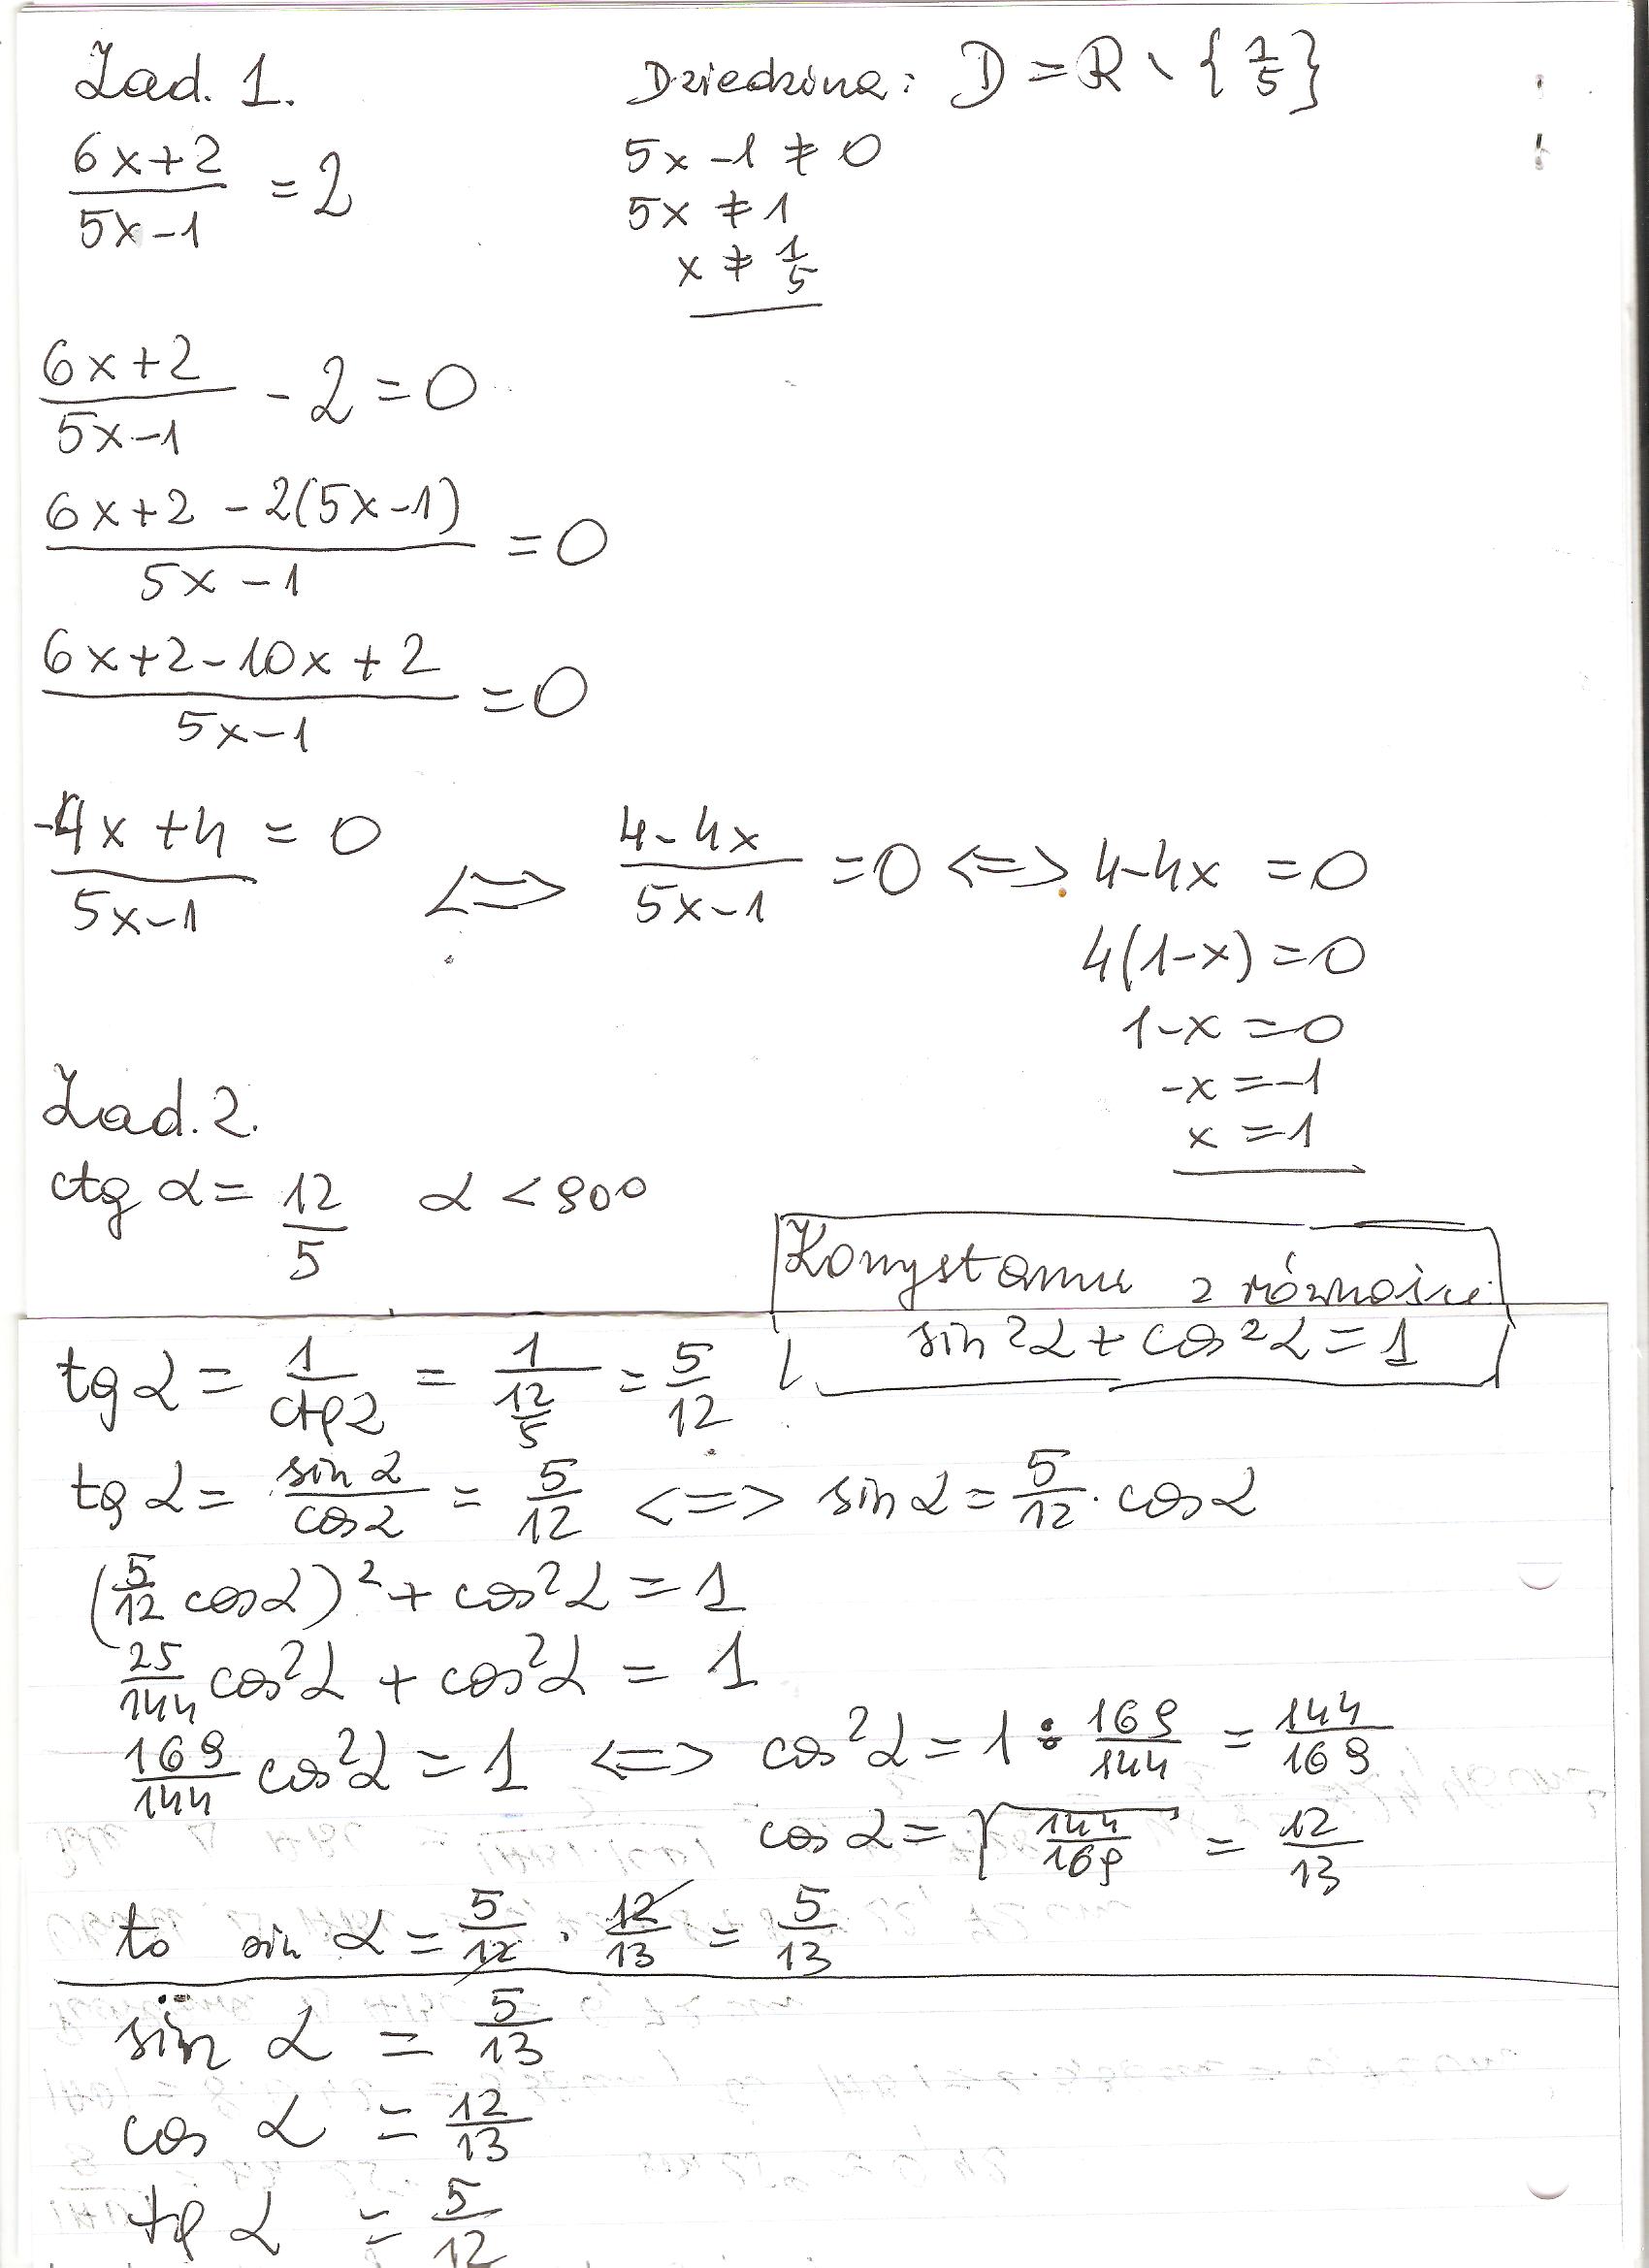 Zad. 1.
Dziedzina: D = R \ {1/5}
(6x+2)/(5x-1) = 2
5x - 1 ≠ 0
5x ≠ 1
x ≠ 1/5
(6x+2)/(5x-1) - 2 = 0
(6x+2 - 2(5x-1))/(5x-1) = 0
(6x+2-10x+2)/(5x-1) = 0
(-4x+4)/(5x-1) = 0 <=> (4-4x)/(5x-1) = 0 <=> 4-4x = 0
4(1-x) = 0
1-x = 0
-x = -1
x = 1
Zad. 2.
ctg α = 12/5 α < 90°
Korzystamy z równości:
sin²α + cos²α = 1
tg α = 1/ctg α = 1/(12/5) = 5/12
tg α = sin α/cos α = 5/12 <=> sin α = 5/12 · cos α
(5/12 cos α)² + cos²α = 1
25/144 cos²α + cos²α = 1
169/144 cos²α = 1 <=> cos²α = 1 : 169/144 = 144/169
cos α = √(144/169) = 12/13
to sin α = 5/12 · 12/13 = 5/13
sin α = 5/13
cos α = 12/13
tg α = 5/12